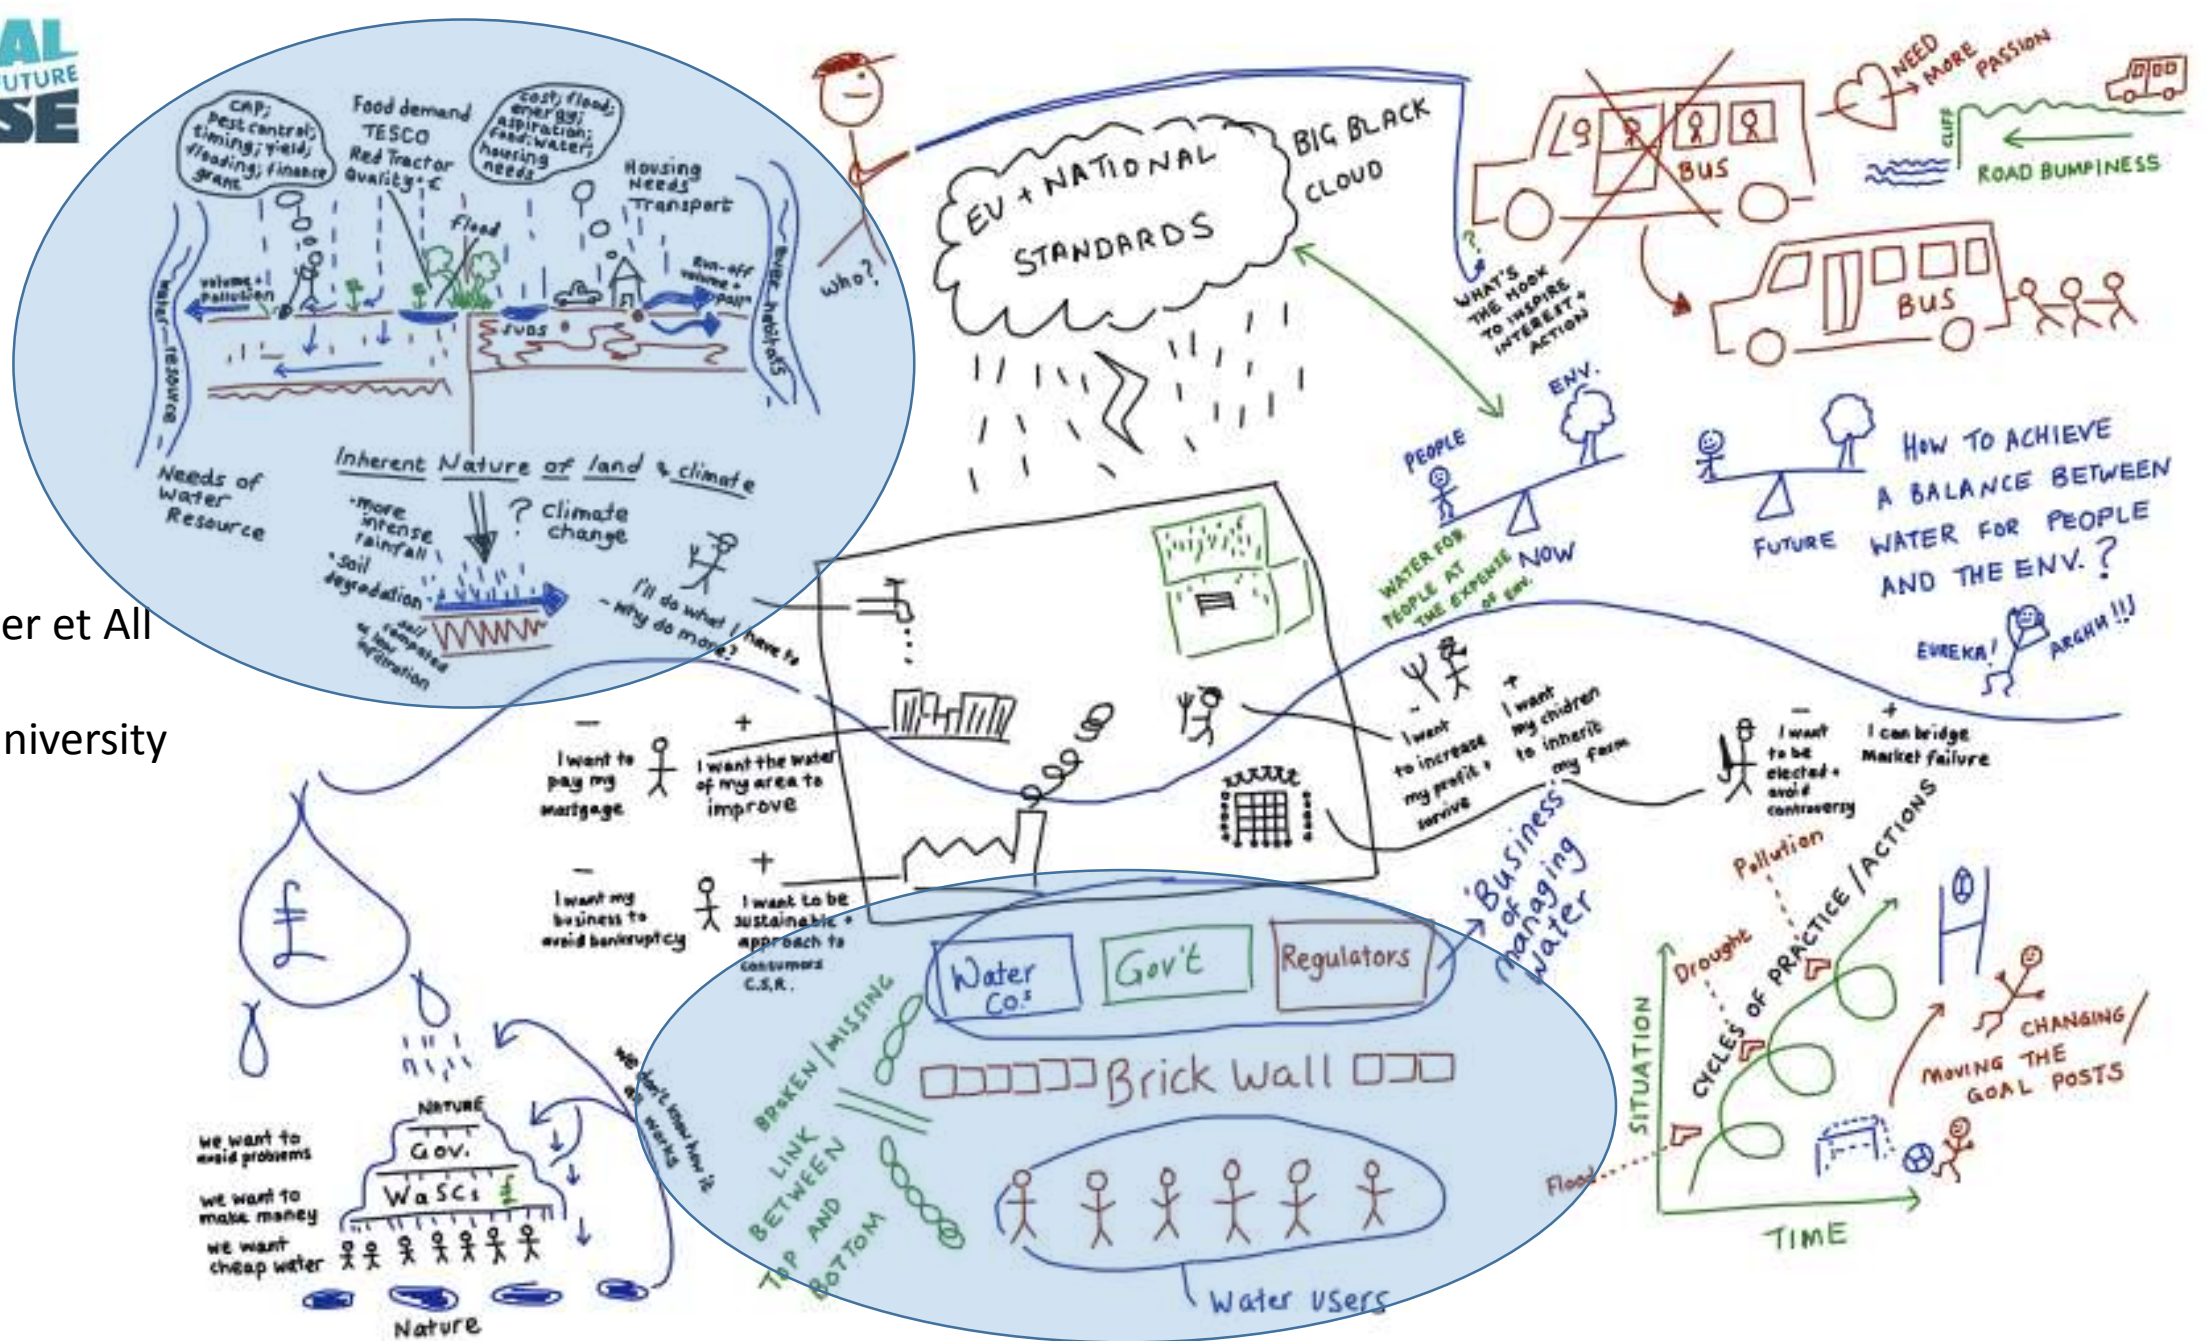 AL
FUTURE
SE
er et All
niversity
CAP;
Pest control;
timing; yield;
flooding; finance
grant
Food demand
TESCO
Red Tractor
Quality + €
flood
cost; flood;
energy;
aspiration;
food; water;
housing
needs
Housing
Needs
Transport
volume +
Pollution
Run-off
volume +
poll"
SUDS
water resource
river habitats
Needs of
Water
Resource
Inherent Nature of land & climate
• more
intense
rainfall
• soil
degradation
? climate
change
soil
compated
& low
infiltration
I'll do what I have to
- why do more?
Who?
EU + NATIONAL
STANDARDS
BIG BLACK
CLOUD
?
WHAT'S
THE HOOK
TO INSPIRE
INTEREST +
ACTION
BUS
NEED
MORE
PASSION
CLIFF
ROAD BUMPINESS
BUS
PEOPLE
ENV.
NOW
WATER FOR
PEOPLE AT
THE EXPENSE
OF ENV.
FUTURE
HOW TO ACHIEVE
A BALANCE BETWEEN
WATER FOR PEOPLE
AND THE ENV. ?
EUREKA!
ARGHH!!!
-
I want to
pay my
mortgage
+
I want the water
of my area to
improve
-
I want my
business to
avoid bankruptcy
+
I want to be
sustainable +
approach to
consumers
C.S.R.
-
I want
to increase
my profit +
survive
+
I want
my chidren
to inherit
my farm
-
I want
to be
elected +
avoid
controversy
+
I can bridge
market failure
£
NATURE
Gov.
WaSCs
we want to
avoid problems
we want to
make money
we want
cheap water
Nature
we don't know how it
all works
Water
Co.s
Gov't
Regulators
'Business'
of
managing
water
BROKEN/MISSING
LINK
BETWEEN
TOP AND
BOTTOM
Brick Wall
Water users
SITUATION
TIME
CYCLES OF PRACTICE/ACTIONS
Flood
Drought
Pollution
CHANGING/
MOVING THE
GOAL POSTS